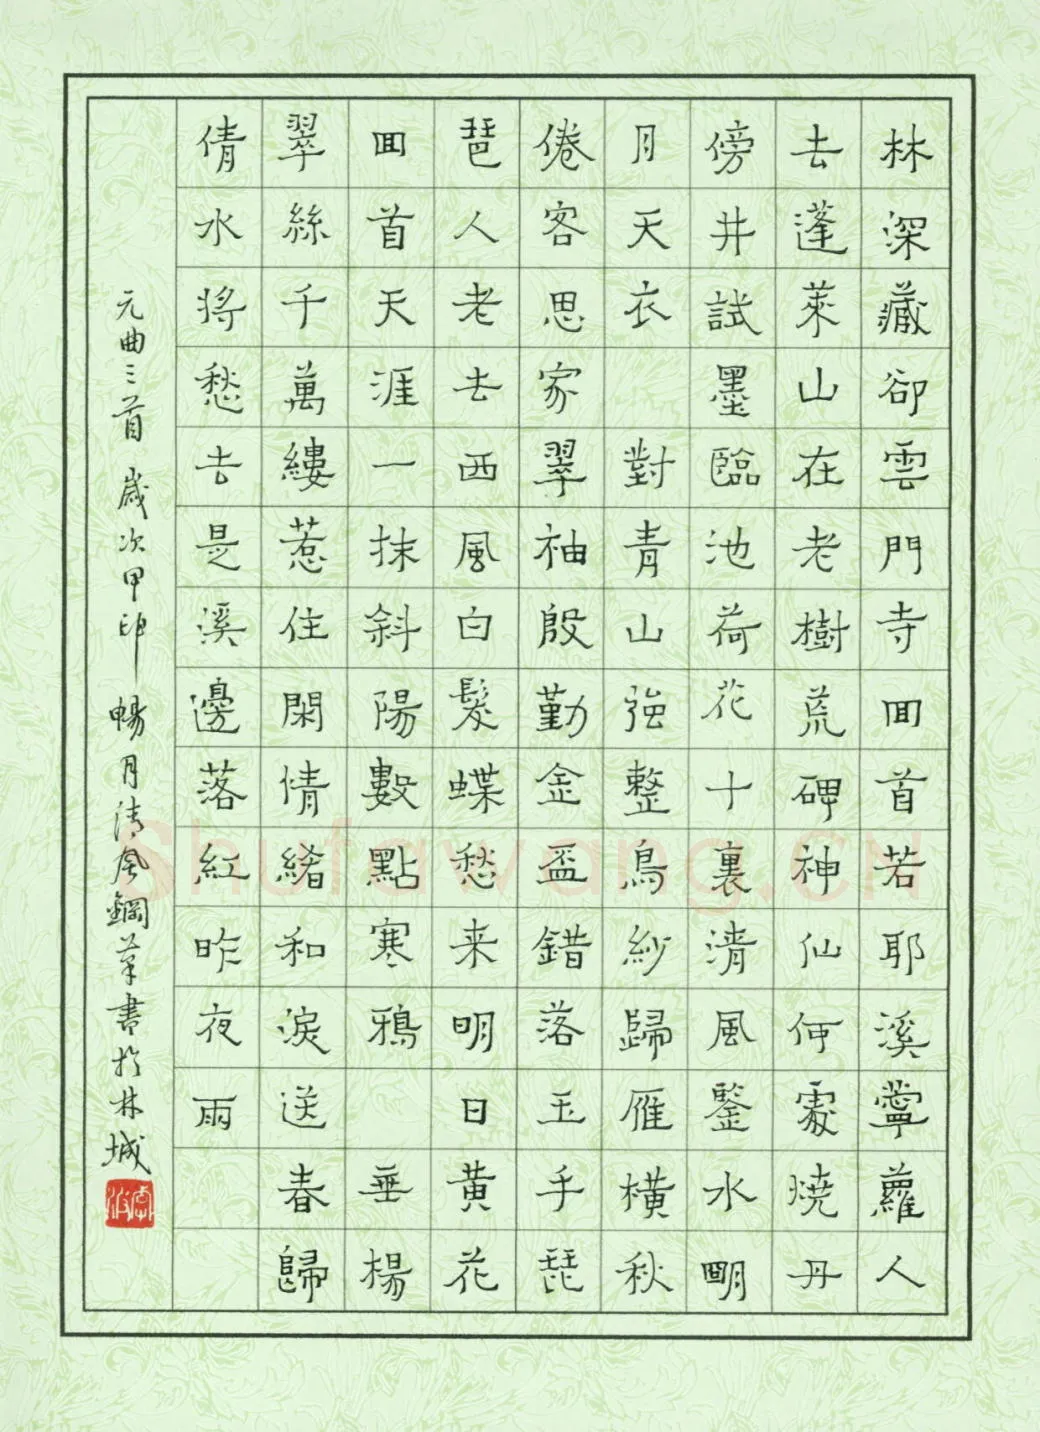 林深藏卻雲門寺囬首若耶溪薴蘿人
去蓬萊山在老樹荒碑神仙何處燒丹
傍井試墨臨池荷花十裏清風鑒水朙
月天衣 對青山強整烏紗歸雁橫秋
倦客思家翠袖殷勤金盃錯落玉手琵
琶人老去西風白髮蝶愁来明日黃花
囬首天涯一抹斜陽數點寒鴉 垂楊
翠絲千萬縷惹住閑情緒和淚送春歸
倩水將愁去是溪邊落紅昨夜雨
元曲三首 歲次甲 暢月清風鋼筆書於林城
Shufawang.cn